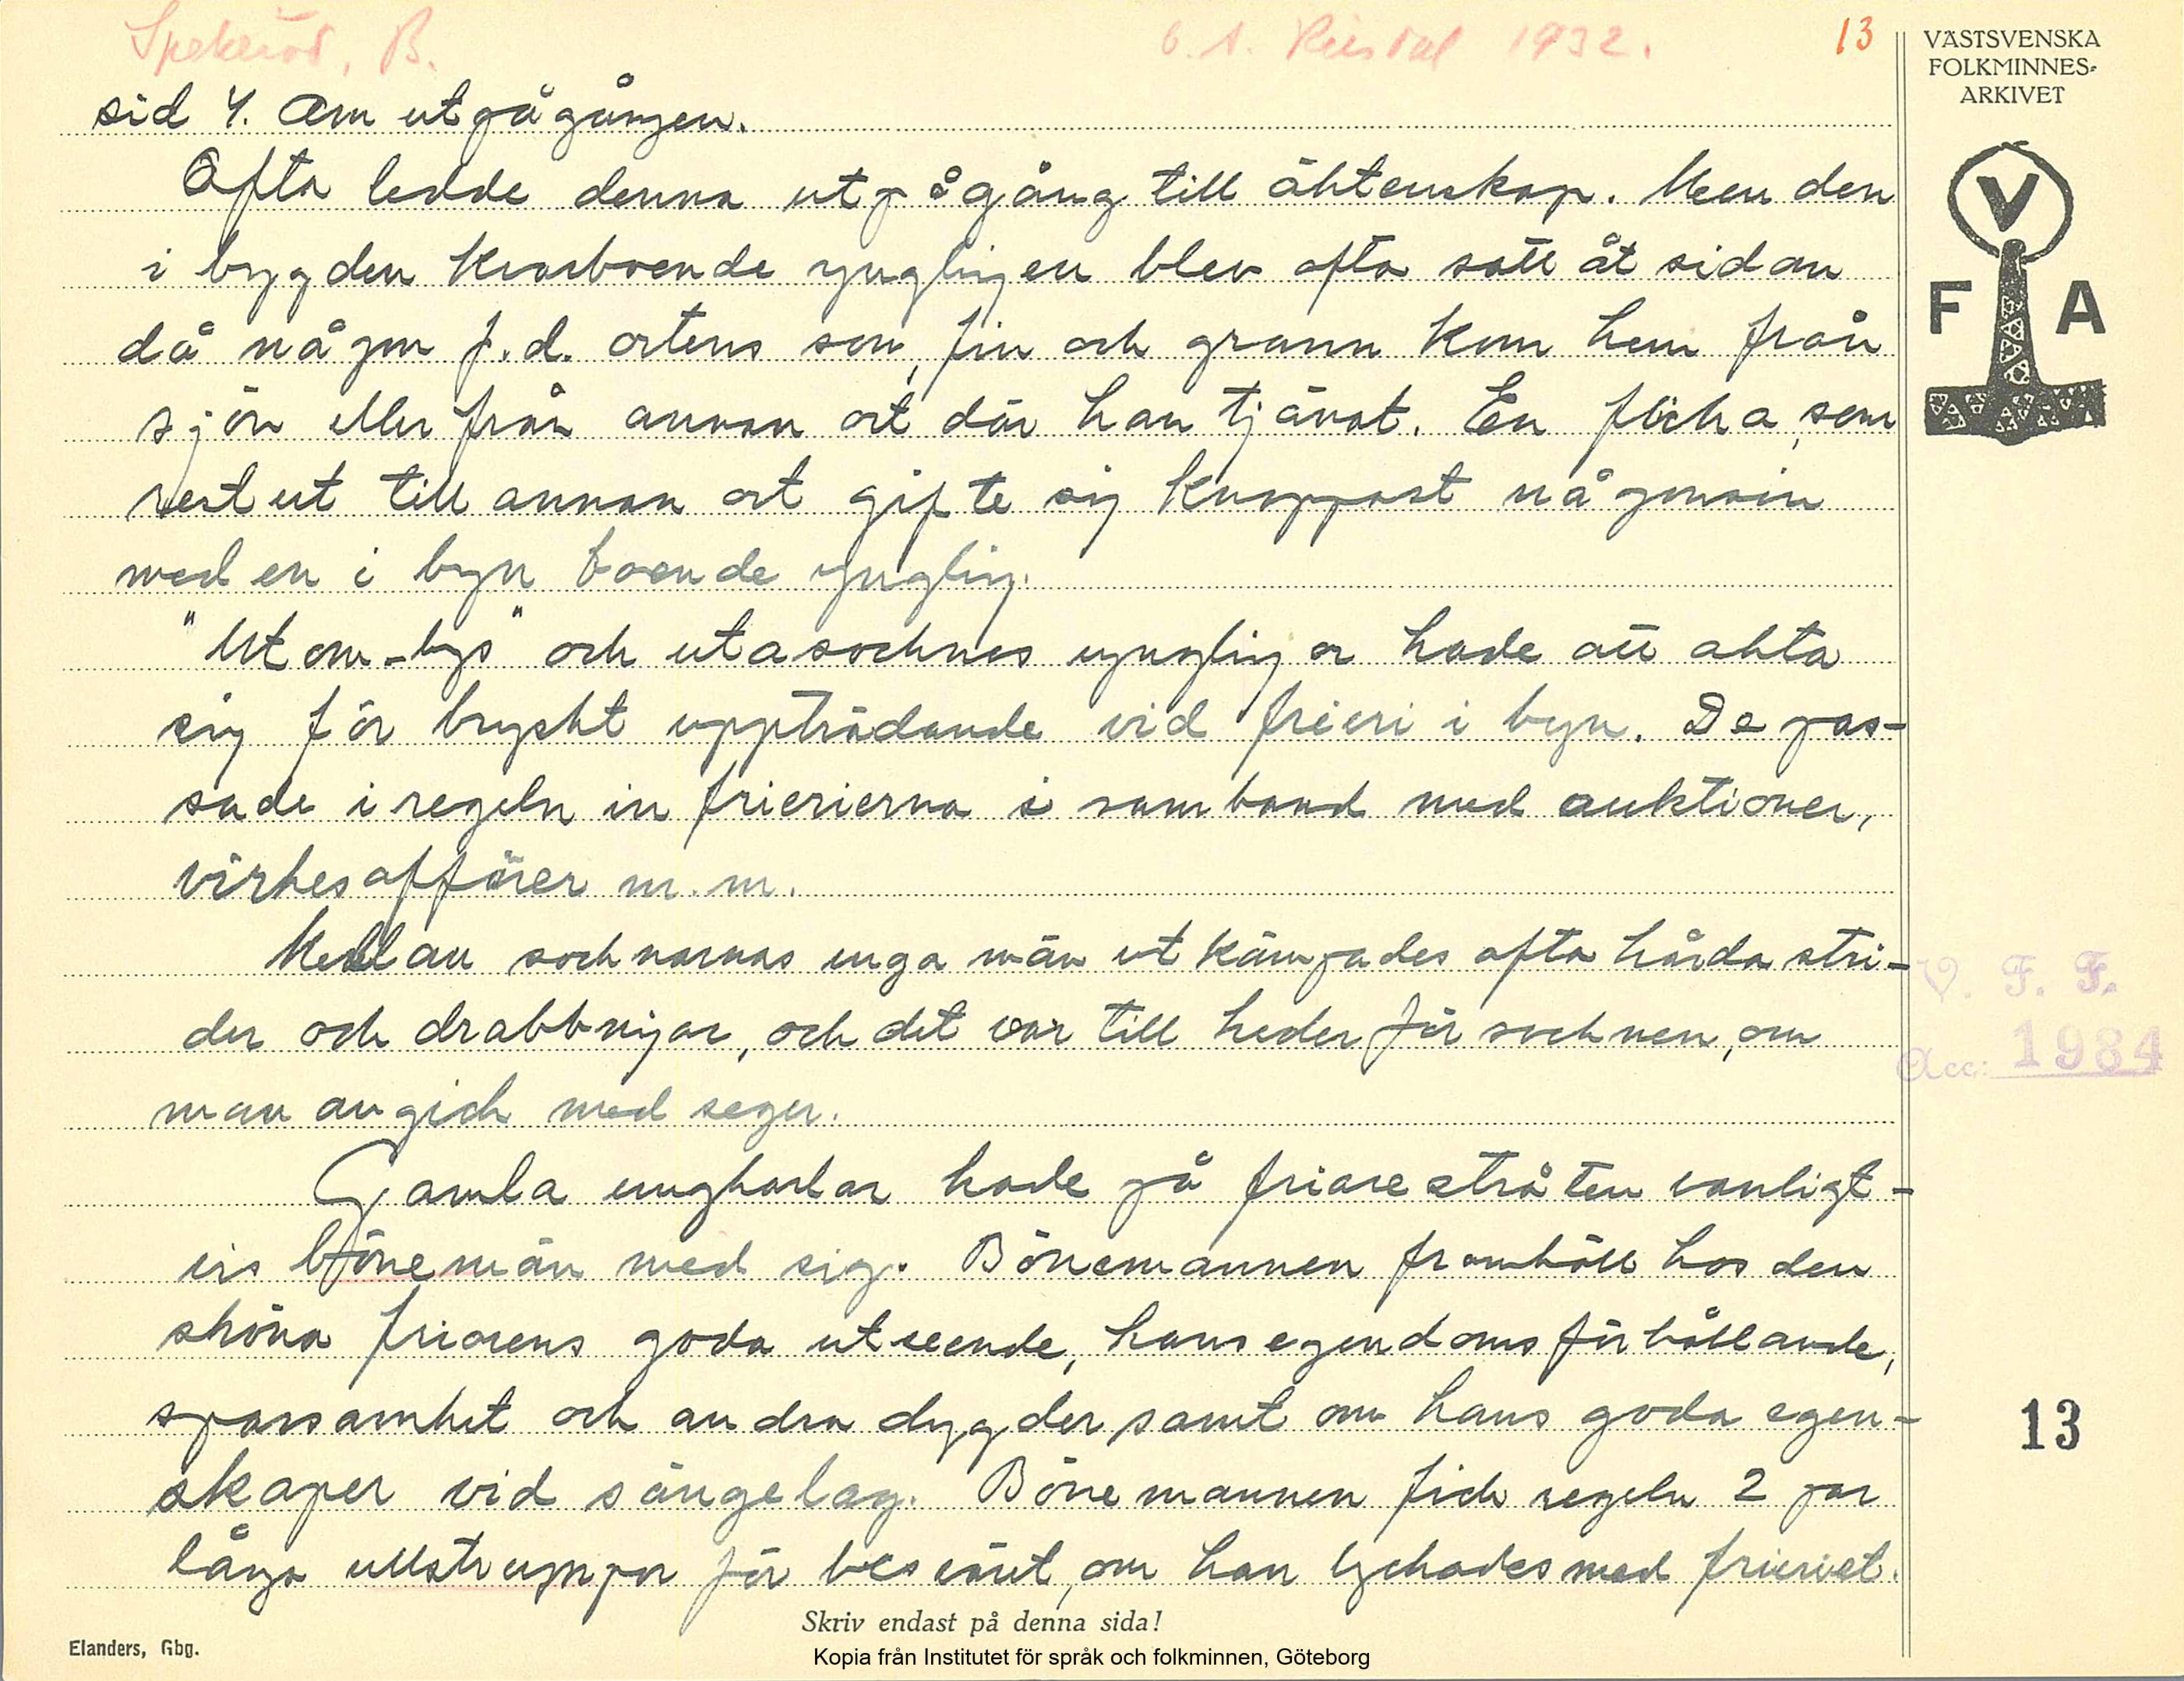 Spekeröd, B.
1932.
13
VÄSTSVENSKA
FOLKMINNES-
ARKIVET
V
F A
sid 4. Om utpågången.
Ofta ledde denna utpågång till äktenskap. Men den
i bygden kvarboende ynglingen blev ofta satt åt sidan
då någon f.d. ortens son, fin och grann kom hem från
sjön eller från annan ort där han tjänat. En flicka, som
rest ut till annan ort gifte sig knappast någonsin
med en i byn boende yngling.
"Utom-bys" och utasocknes ynglingar hade att akta
sig för bryskt uppträdande vid frieri i byn. De pas-
sade i regeln in frierierna i samband med auktioner,
virkesaffärer m.m.
Mellan socknarnas unga män utkämpades ofta hårda stri-
der och drabbningar, och det var till heder för socknen, om
man avgick med seger.
Gamla ungkarlar hade på friarestråten vanligt-
vis bönemän med sig. Bönemannen framhöll hos den
sköna friarens goda utseende, hans egendomsförhållande,
sparsamhet och andra dygder samt om hans goda egen-
skaper vid sängelag. Bönemannen fick regeln 2 par
långa ullstrumpor för besväret, om han lyckades med frieriet.
V. F. F.
Acc: 1984
13
Skriv endast på denna sida!
Elanders, Gbg.
Kopia från Institutet för språk och folkminnen, Göteborg